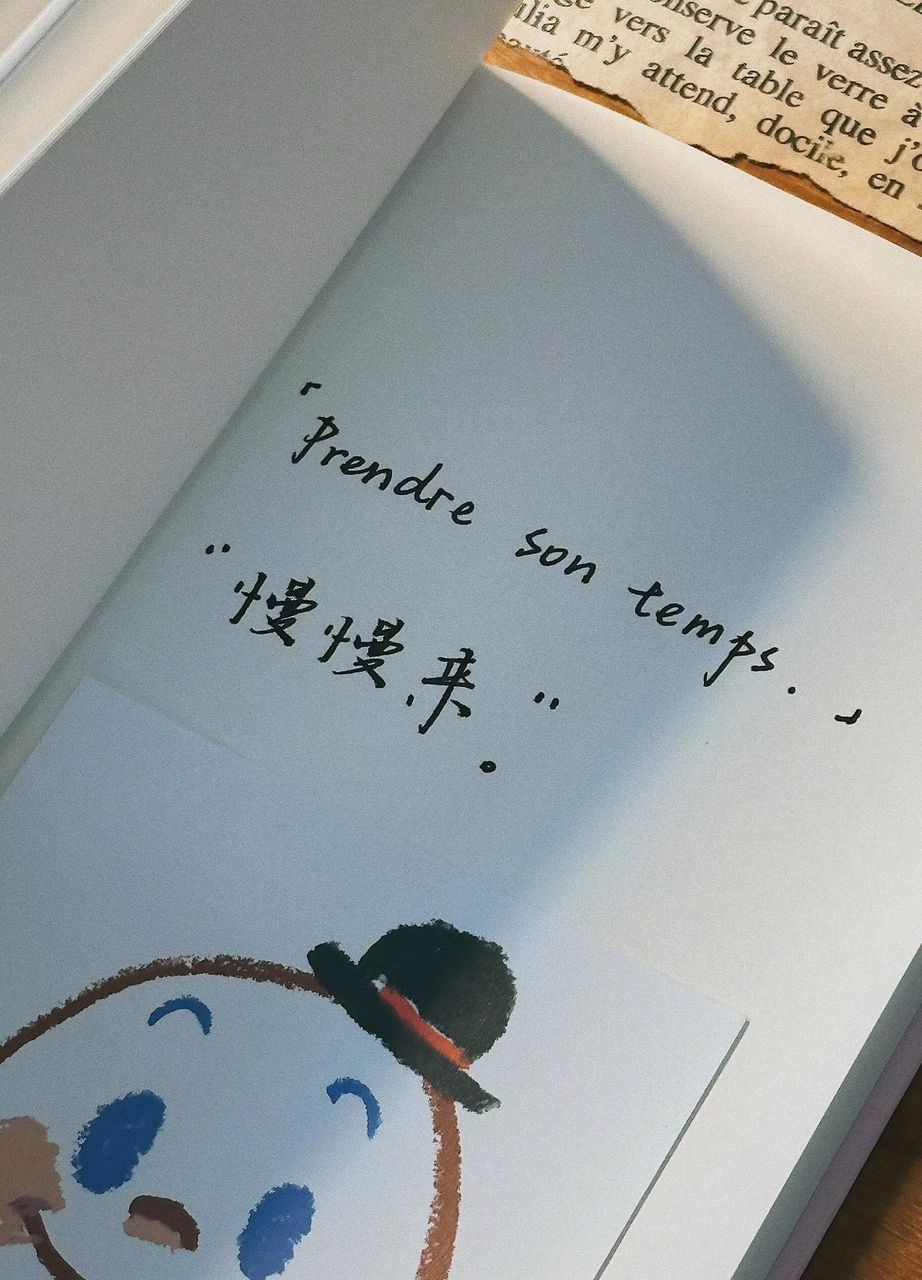 paraît assez
onserve le verre à
ge vers la table que j'o
ulia m'y attend, docile, en
「Prendre son temps.」
“慢慢来。”